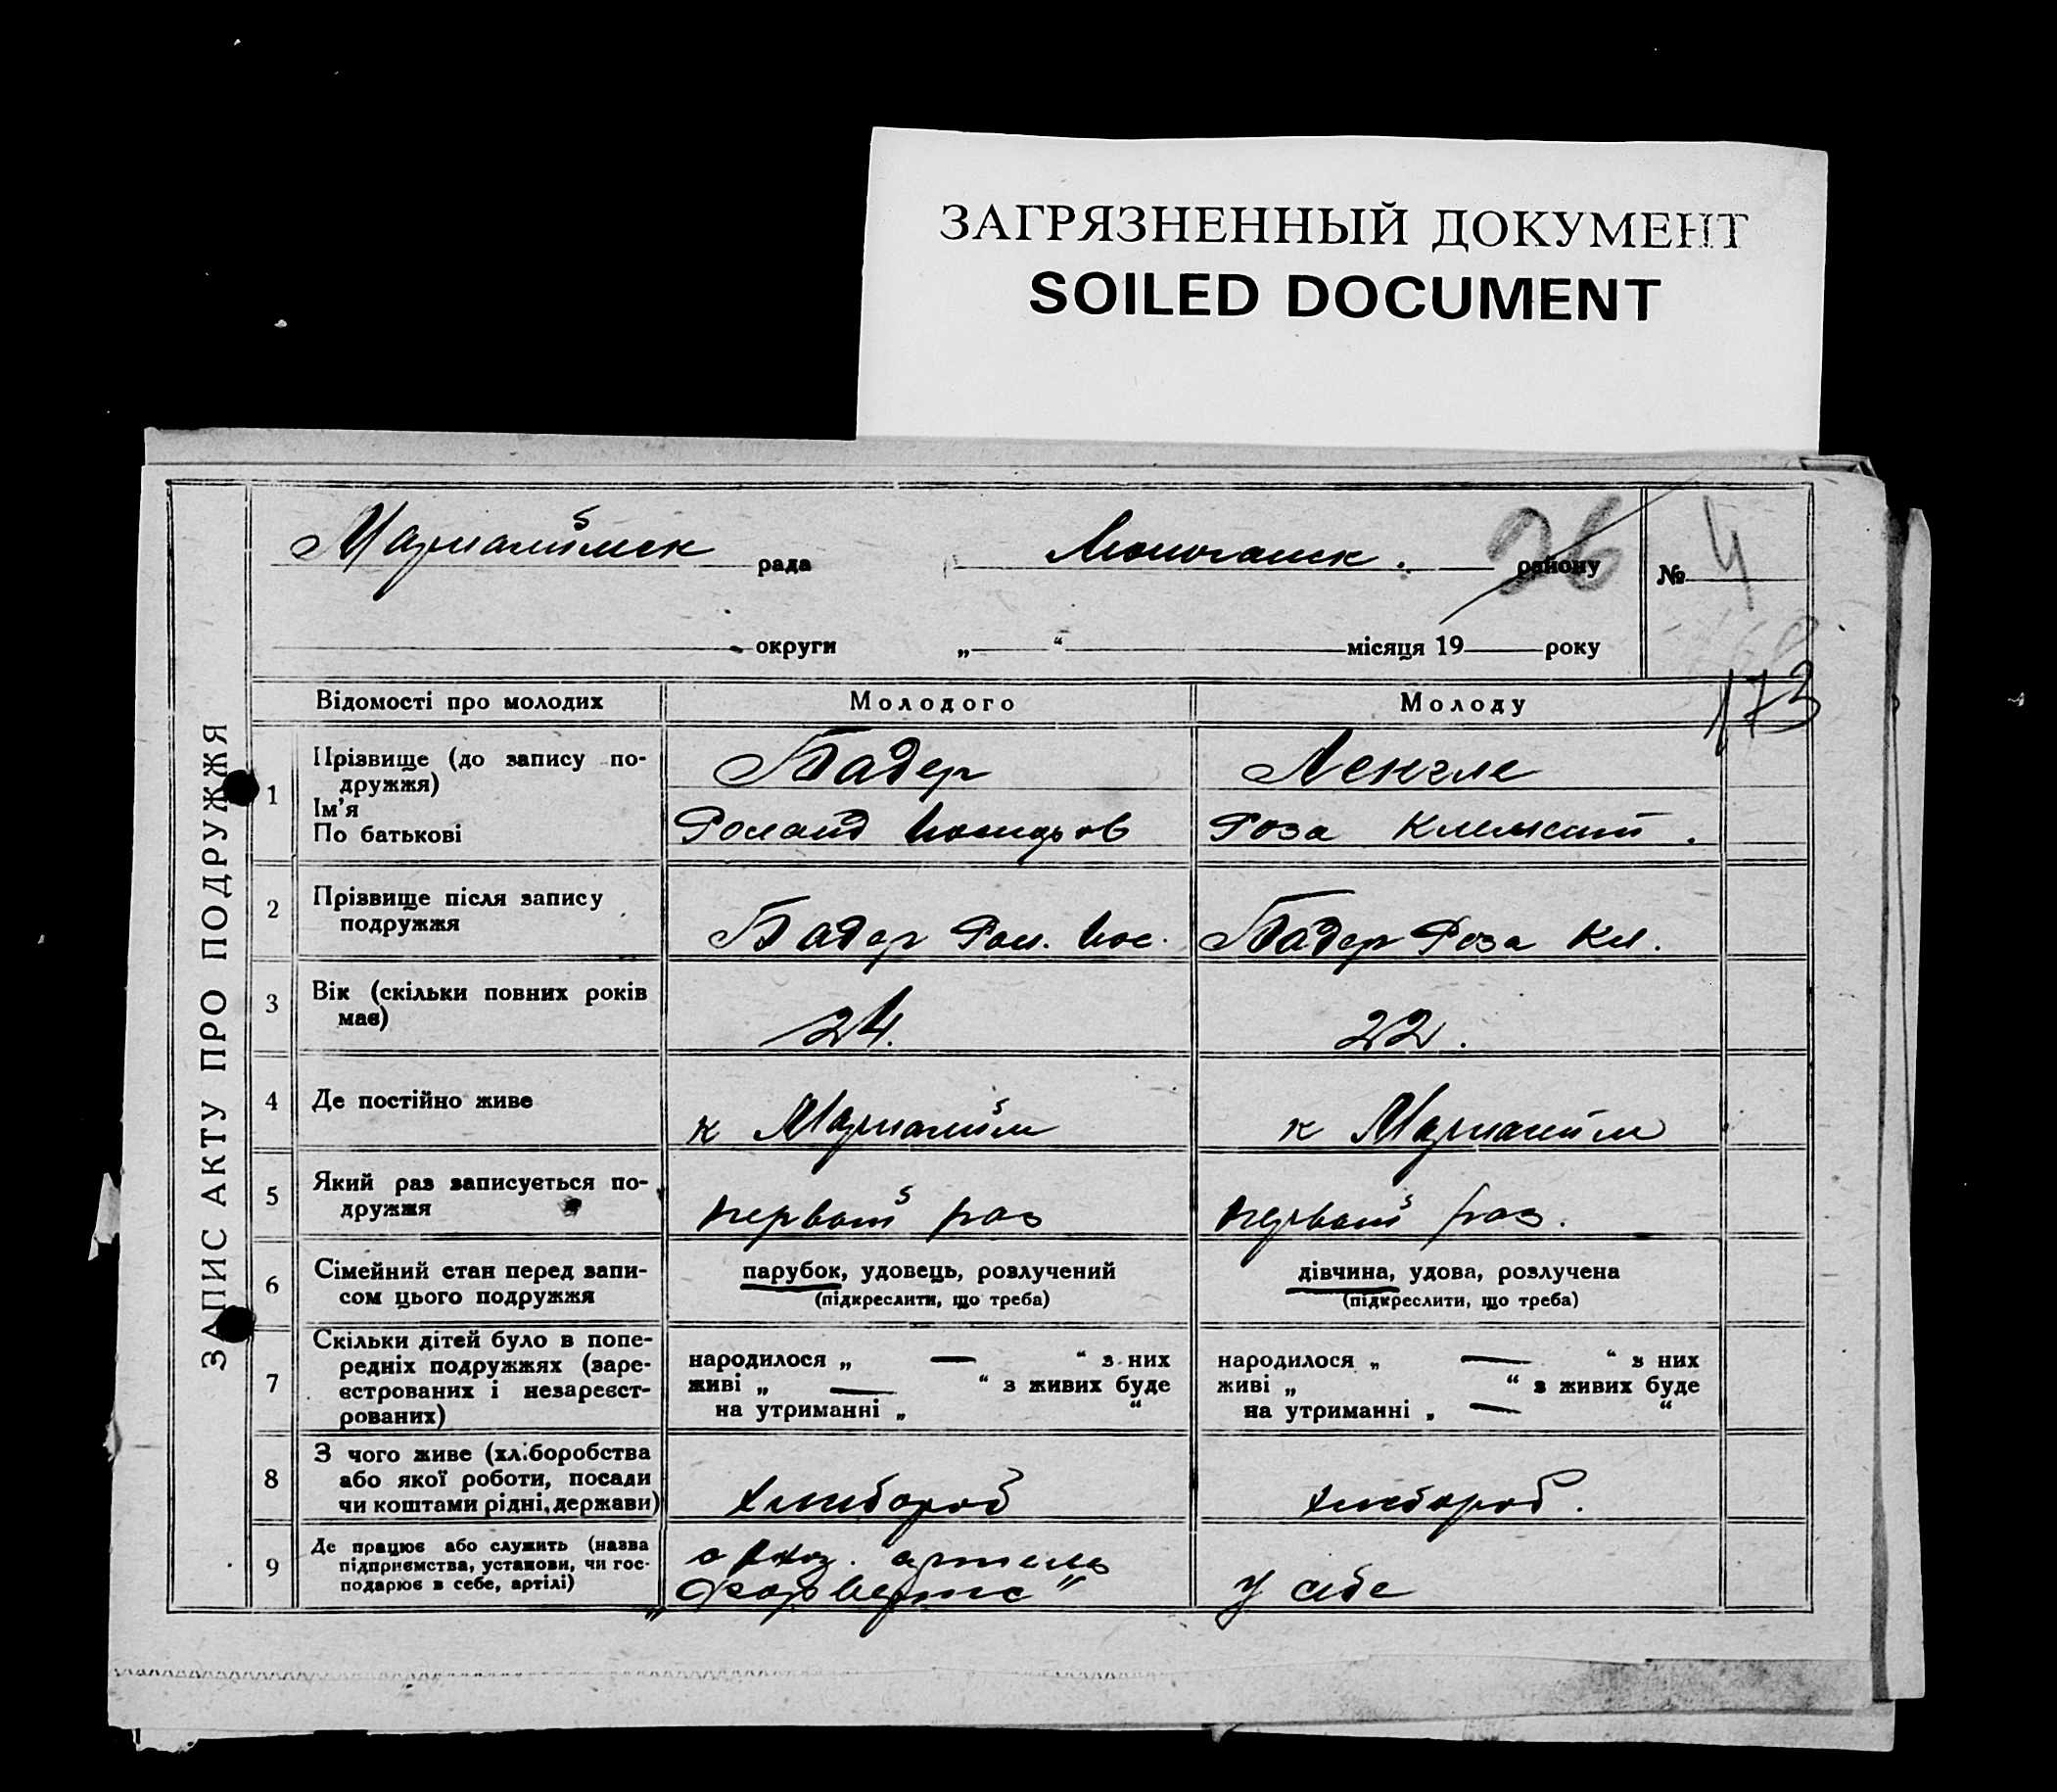 ЗАГРЯЗНЕННЫЙ ДОКУМЕНТ
SOILED DOCUMENT
ЗАПИС АКТУ ПРО ПОДРУЖЖЯ
рада
району 26
№ 4
округи „ “ місяця 19 року
173
Відомості про молодих Молодого Молоду
1
Прізвище (до запису по-
дружжя)
Ім'я
По батькові
Бадер
Роланд
Ленгле
Роза Клемент.
2
Прізвище після запису
подружжя
Бадер Рол. Иос.
Бадер Роза Кл.
3
Вік (скільки повних років
має)
24.
22.
4
Де постійно живе
к Мариагейм
к Мариагейм
5
Який раз записується по-
дружжя
первый раз
первый раз.
6
Сімейний стан перед запи-
сом цього подружжя
парубок, удовець, розлучений
(підкреслити, що треба)
дівчина, удова, розлучена
(підкреслити, що треба)
7
Скільки дітей було в попе-
редніх подружжях (заре-
єстрованих і незареєст-
рованих)
народилося „ — “ з них
живі „ — “ з живих буде
на утриманні „ “
народилося „ — “ з них
живі „ “ з живих буде
на утриманні „ — “
8
З чого живе (хліборобства
або якої роботи, посади
чи коштами рідні, держави)
хлибороб
хлибороб.
9
Де працює або служить (назва
підприємства, установи, чи гос-
подарює в себе, артілі)
артель
„Форвертс“
у себе